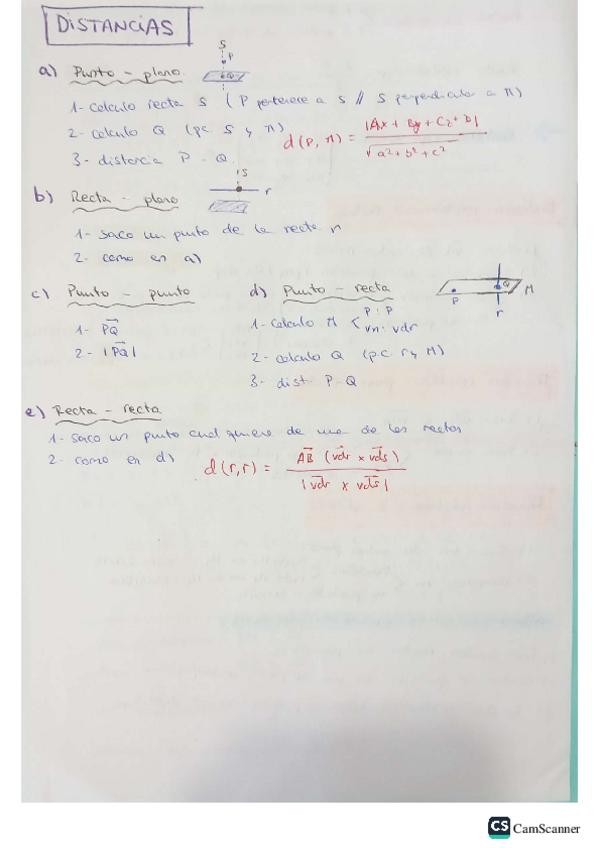 DISTANCIAS
a) Punto - plano
S
P
Q
1- calculo recta s (P pertenece a s // s perpendicular a π)
2- calculo Q (pc s y π)
d(P, π) = |Ax + By + Cz + D| / √a²+b²+c²
3- distancia P - Q.
b) Recta - plano
S
r
1- saco un punto de la recta r
2- como en a)
c) Punto - punto
1- PQ
2- |PQ|
d) Punto - recta
P
Q
M
r
1- calculo M < P: P
vn: vdr
2- calculo Q (p.c. r y M)
3- dist P-Q
e) Recta - recta
1- saco un punto cualquiera de una de las rectas
2- como en d)
d(r,r) = AB (vdr x vds) / |vdr x vds|
CS CamScanner